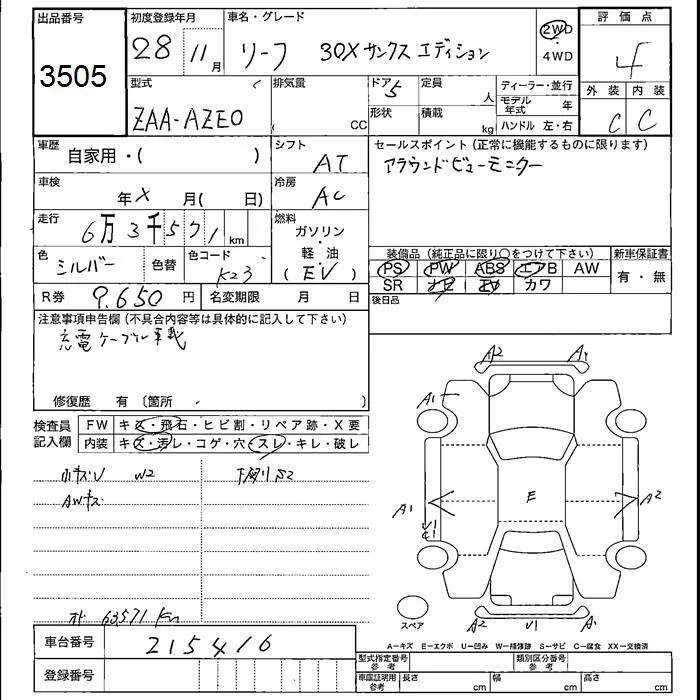 出品番号 初度登録年月 車名・グレード 2WD ・ 4WD 評価点
3505 28 11月 リーフ 30Xサンクスエディション 4
型式 排気量 ドア 5 定員 人 ディーラー・並行 外装 内装
ZAA-AZE0 CC 形状 積載 kg モデル年式 年 C C
ハンドル 左・右
車歴 自家用・( ) シフト AT セールスポイント (正常に機能するものに限ります)
アラウンドビューモニター
車検 年 X 月( 日) 冷房 AC
走行 6万3千571km 燃料 ガソリン・軽油 (EV)
色 シルバー 色替 色コード K23
装備品 (純正品に限り○をつけて下さい) 新車保証書
PS PW ABS エアB AW 有・無
SR ナビ TV カワ
R券 9.650円 名変期限 月 日 後日品
注意事項申告欄 (不具合内容等は具体的に記入して下さい)
充電ケーブル車載
修復歴 有 〔箇所 . 〕
検査員記入欄 FW キズ・飛石・ヒビ割・リペア跡・X要
内装 キズ・汚レ・コゲ・穴・スレ・キレ・破レ
小キズU W2 下廻りS2
AWキズ
A2 A1
A1
E
A1 A2
U1
C1
スペア A2 U1 A1
63571Km
車台番号 215416
A−キズ E−エクボ U−凹み W−補修跡 S−サビ C−腐食 XX−交換済
登録番号
型式指定番号参考 類別区分番号参考
車庫証明用参考 長さ cm 幅 cm 高さ cm